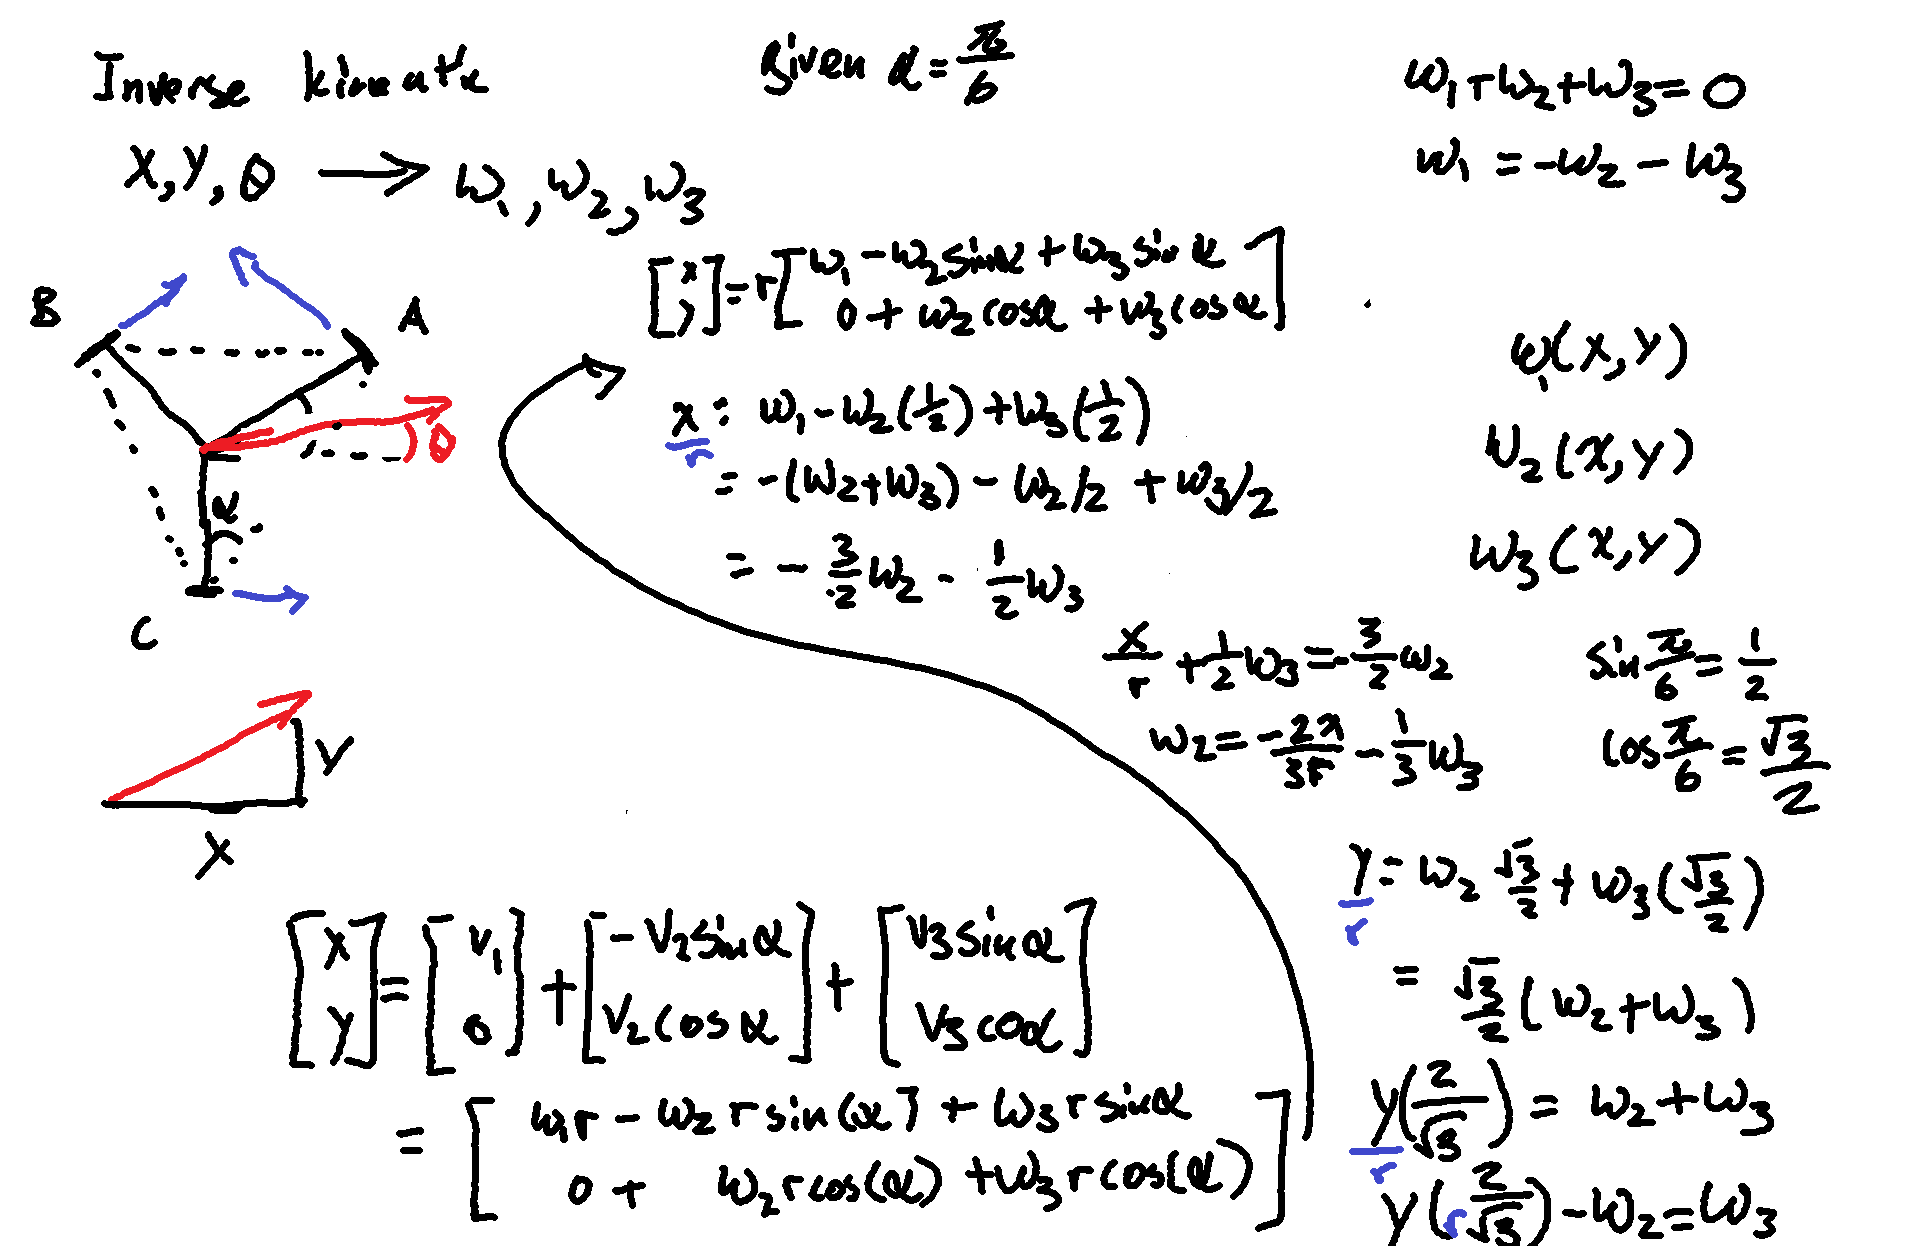 Inverse kinematic
X, Y, θ → ω₁, ω₂, ω₃
given α = π/6
ω₁ + ω₂ + ω₃ = 0
ω₁ = -ω₂ - ω₃
B
A
θ
α
C
[x y] = r [ω₁ - ω₂ sinα + ω₃ sinα
0 + ω₂ cosα + ω₃ cosα]
x/r = ω₁ - ω₂(1/2) + ω₃(1/2)
= -(ω₂+ω₃) - ω₂/2 + ω₃/2
= - 3/2 ω₂ - 1/2 ω₃
ω₁(x, y)
ω₂(x, y)
ω₃(x, y)
x/r + 1/2 ω₃ = -3/2 ω₂
ω₂ = -2x/3r - 1/3 ω₃
sin π/6 = 1/2
cos π/6 = √3/2
Y
X
y/r = ω₂ √3/2 + ω₃(√3/2)
= √3/2 (ω₂ + ω₃)
y/r (2/√3) = ω₂ + ω₃
y(2/r√3) - ω₂ = ω₃
[x y] = [v₁ 0] + [-v₂ sinα v₂ cosα] + [v₃ sinα v₃ coα]
= [ω₁r - ω₂ r sin(α) + ω₃ r sinα
0 + ω₂ r cos(α) + ω₃ r cos(α)]